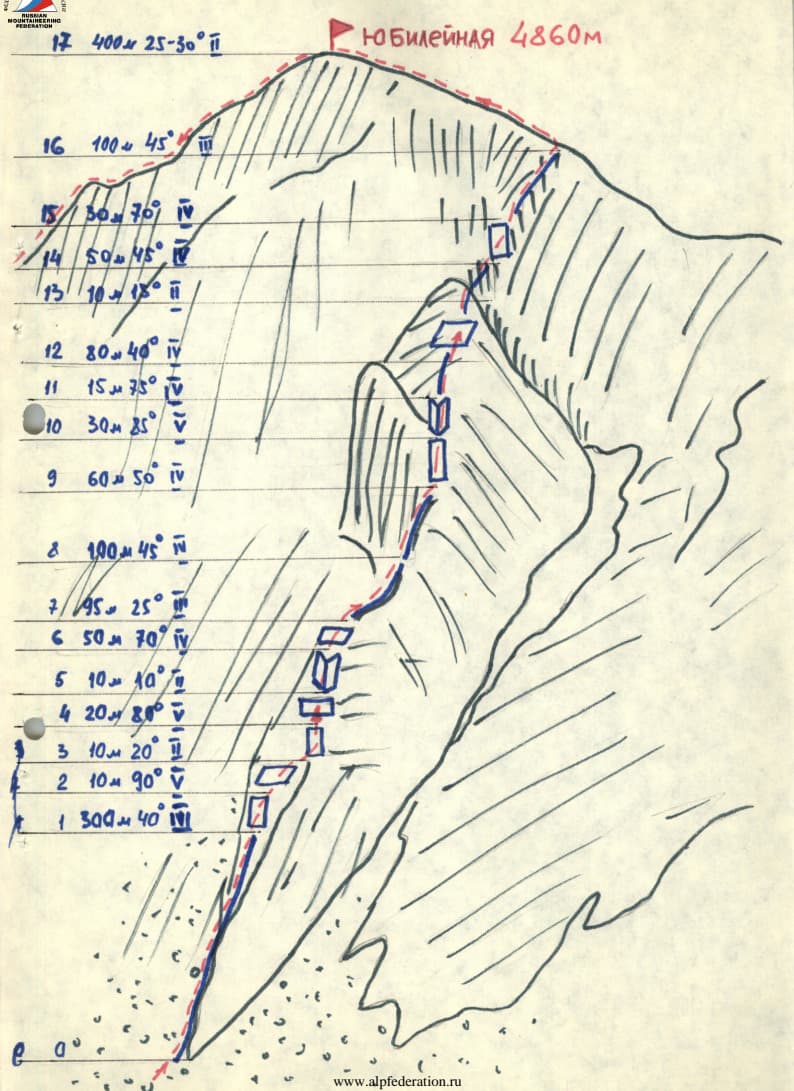 RUSSIAN
MOUNTAINEERING
FEDERATION
Юбилейная 4860м
17 400м 25-30° II
16 100м 45° III
15 30м 70° IV
14 50м 45° IV
13 10м 15° II
12 80м 40° IV
11 15м 75° IV
10 30м 85° V
9 60м 50° IV
8 100м 45° IV
7 95м 25° III
6 50м 70° IV
5 10м 10° II
4 20м 80° V
3 10м 20° II
2 10м 90° V
1 300м 40° III
0
www.alpfederation.ru